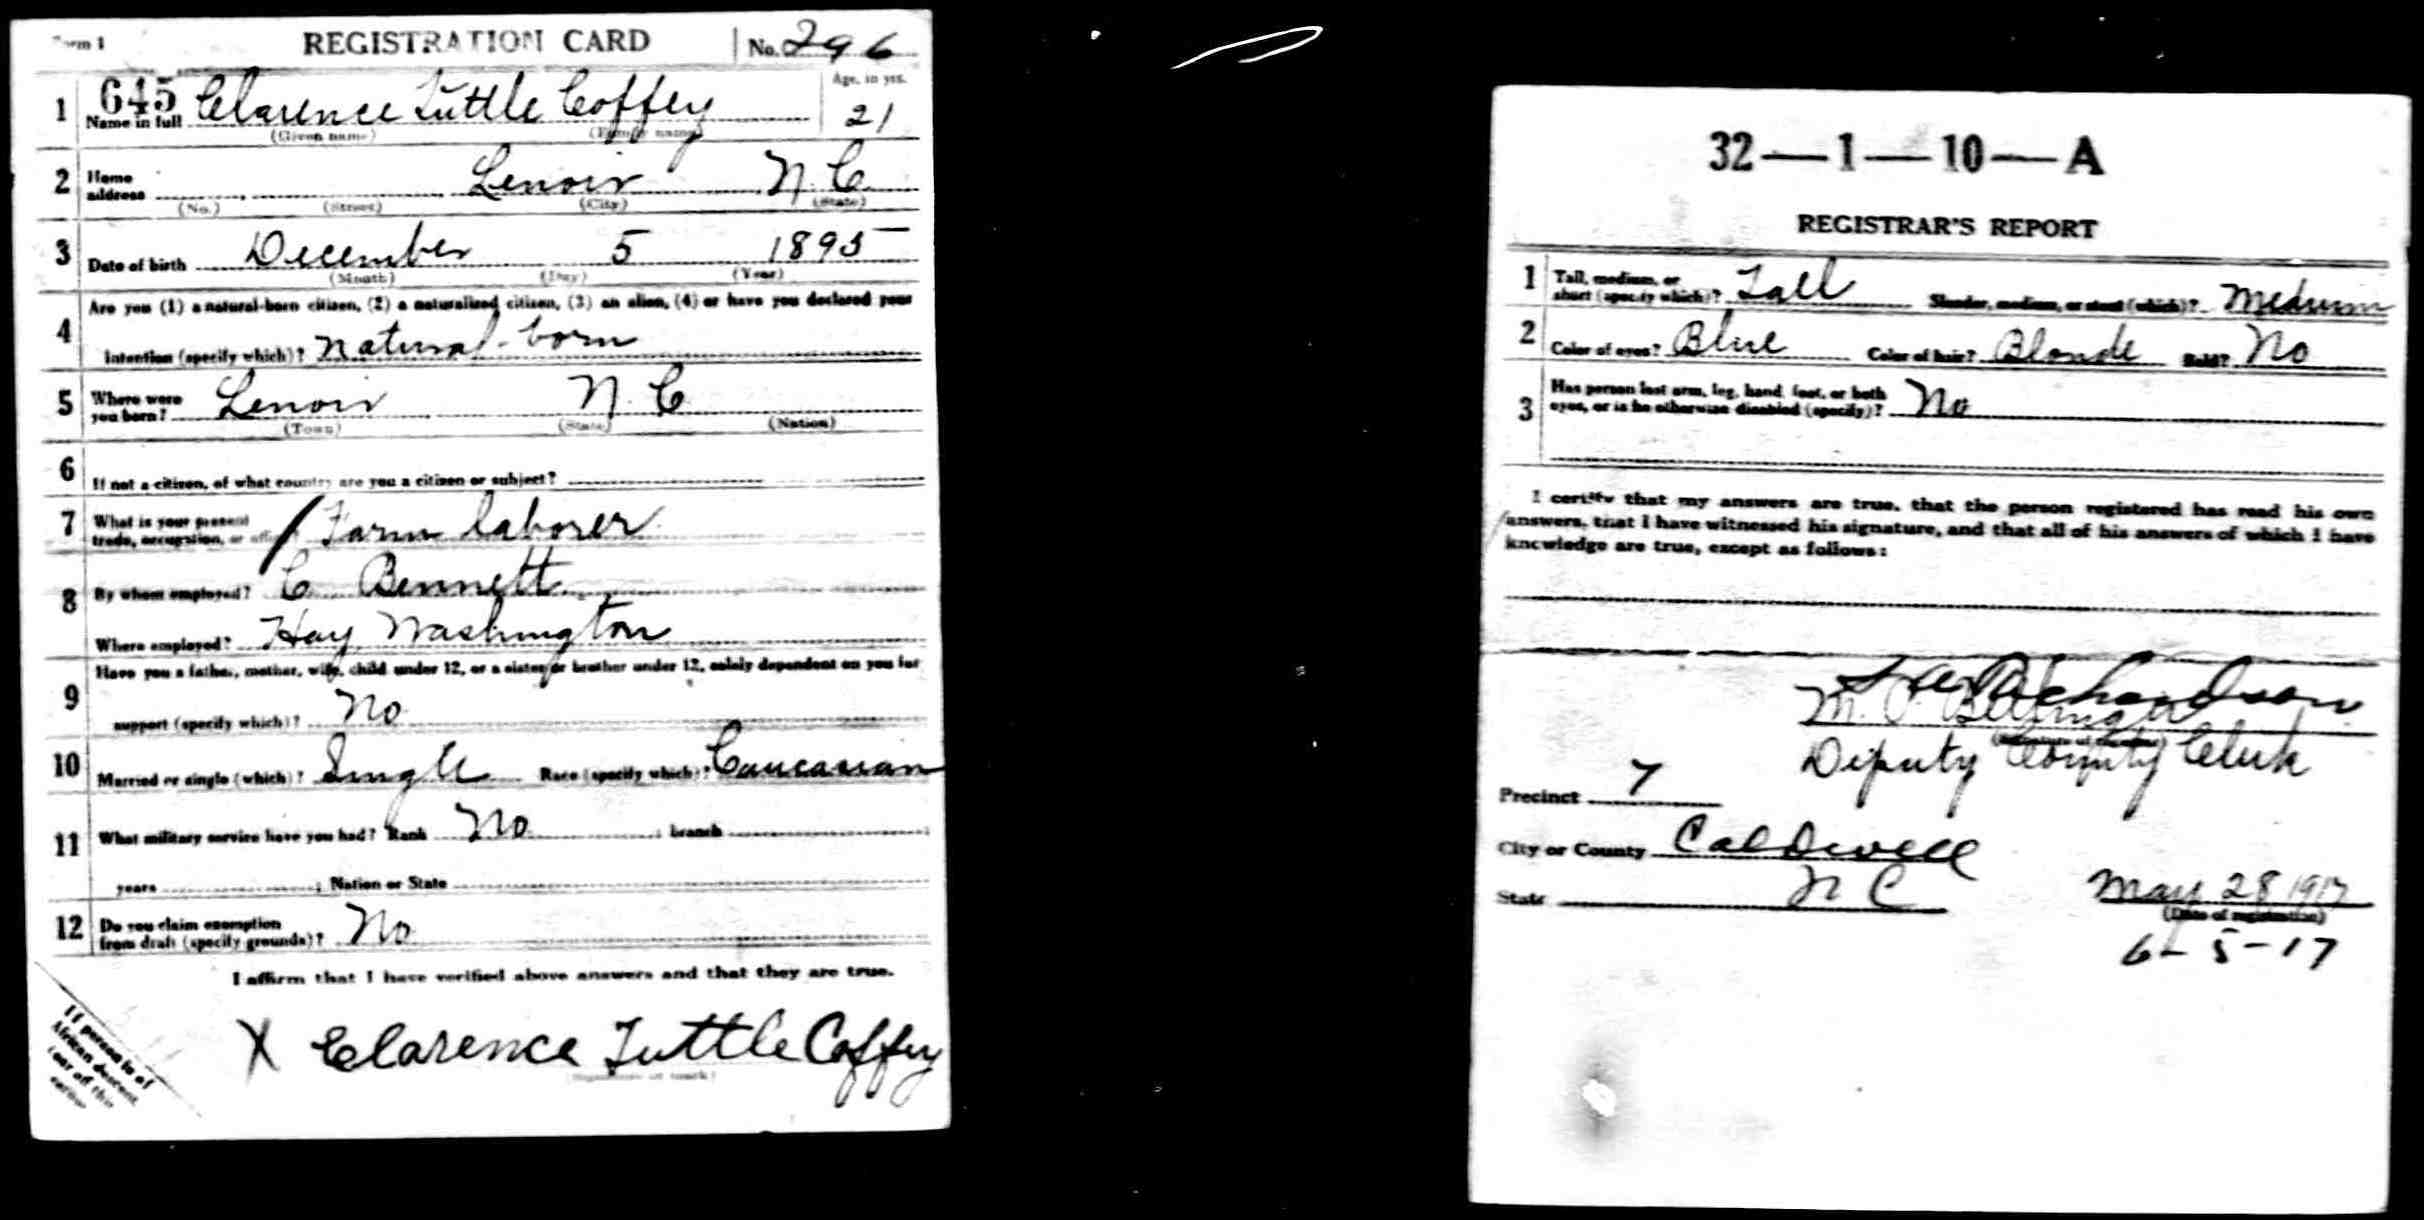 Form 1 REGISTRATION CARD No. 296
645
1 Name in full Clarence Tuttle Coffey Age, in yrs. 21
(Given name) (Family name)
2 Home address Lenoir N. C.
(No.) (Street) (City) (State)
3 Date of birth December 5 1895
(Month) (Day) (Year)
4 Are you (1) a natural-born citizen, (2) a naturalized citizen, (3) an alien, (4) or have you declared your
intention (specify which)? Natural-born
5 Where were you born? Lenoir N. C.
(Town) (State) (Nation)
6 If not a citizen, of what country are you a citizen or subject?
7 What is your present trade, occupation, or office Farm laborer
8 By whom employed? C. Bennett
Where employed? Hay Washington
9 Have you a father, mother, wife, child under 12, or a sister or brother under 12, solely dependent on you for
support (specify which)? No
10 Married or single (which)? Single Race (specify which)? Caucasian
11 What military service have you had? Rank No ; branch ;
years ; Nation or State
12 Do you claim exemption from draft (specify grounds)? No
I affirm that I have verified above answers and that they are true.
X Clarence Tuttle Coffey
(Signature or mark)
If person is of
African descent,
tear off this
corner
32—1—10—A
REGISTRAR'S REPORT
1 Tall, medium, or short (specify which)? Tall Slender, medium, or stout (which)? Medium
2 Color of eyes? Blue Color of hair? Blonde Bald? No
3 Has person lost arm, leg, hand, foot, or both eyes, or is he otherwise disabled (specify)? No
I certify that my answers are true, that the person registered has read his own
answers, that I have witnessed his signature, and that all of his answers of which I have
knowledge are true, except as follows:
Richardson
M.
(Signature of Registrar)
Deputy County Clerk
Precinct 7
City or County Caldwell
State N C
May 28 1917
(Date of registration)
6-5-17